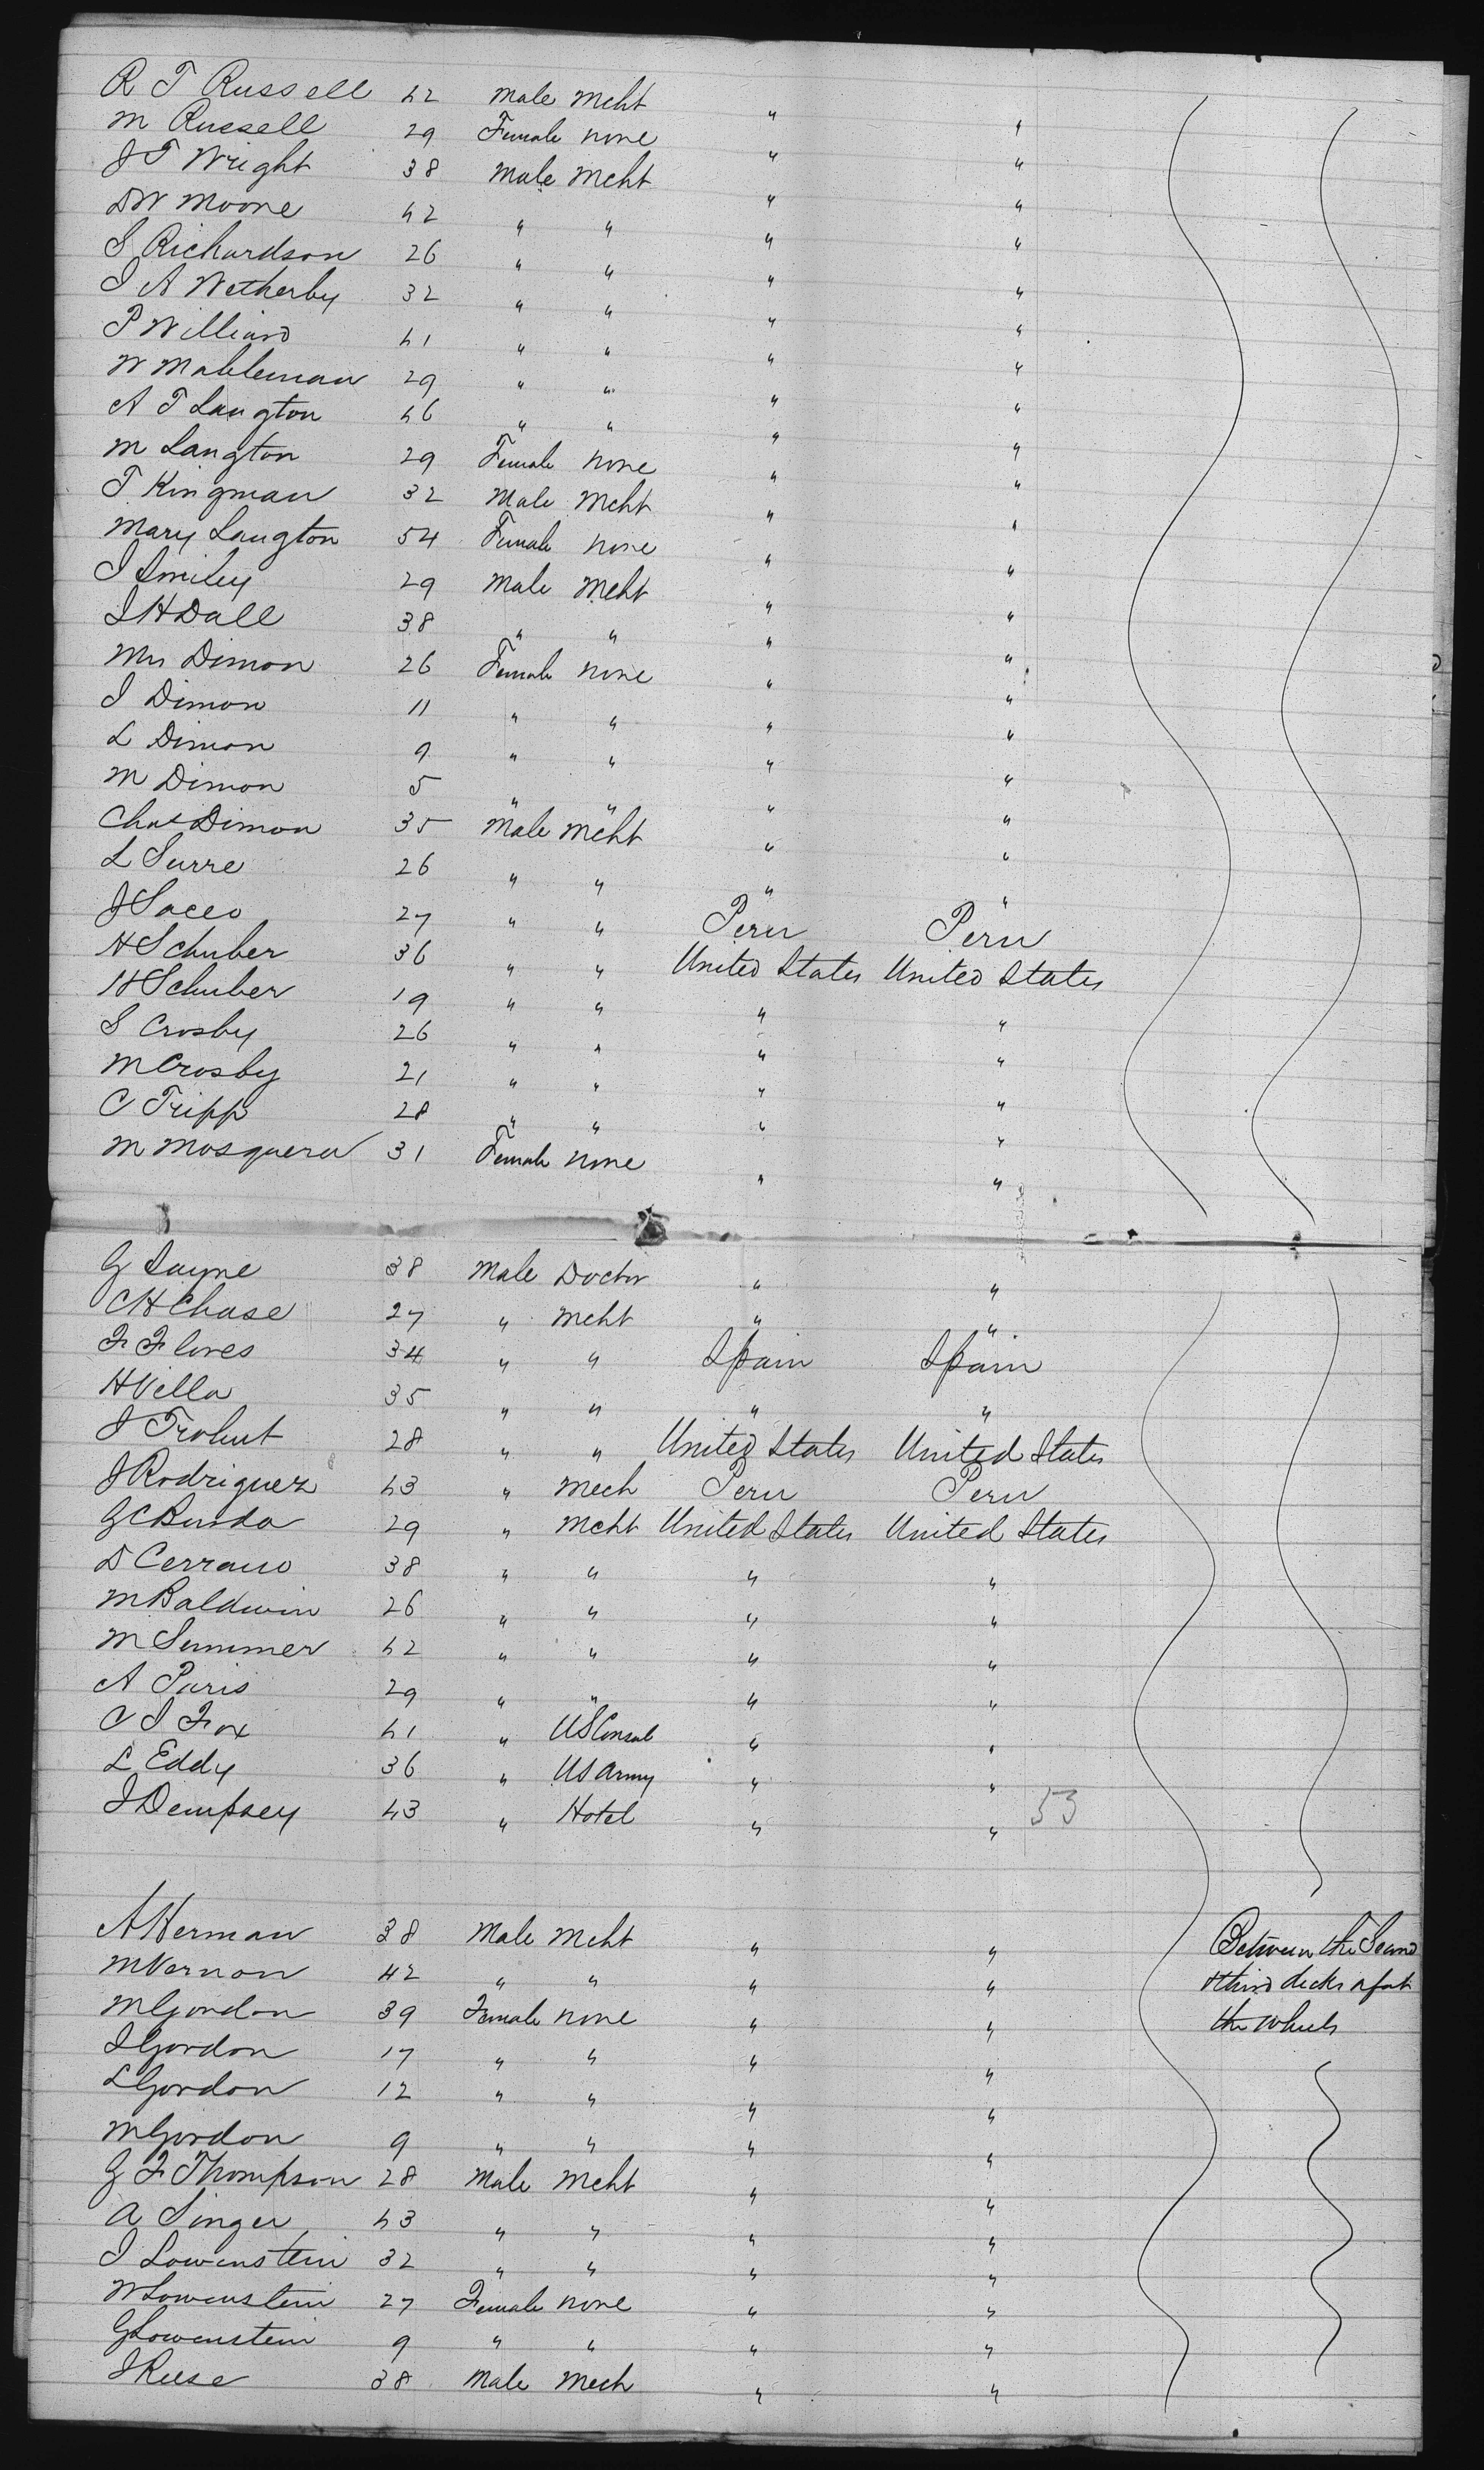 R T Russell 42 Male Mcht " "
M Russell 29 Female none " "
J T Wright 38 Male Mcht " "
D W Moore 42 " " " "
S Richardson 26 " " " "
J A Wetherby 32 " " " "
P Williard 41 " " " "
W 29 " " " "
A T Langton 46 " " " "
M Langton 29 Female none " "
T Kingman 32 Male Mcht " "
Mary Langton 54 Female none " "
J Smiley 29 Male Mcht " "
J H Dall 38 " " " "
Mrs Dimon 26 Female none " "
J Dimon 11 " " " "
L Dimon 9 " " " "
M Dimon 5 " " " "
Chas Dimon 35 Male Mcht " "
L Surre 26 " " " "
J Sacco 27 " " Peru Peru
H Schuber 36 " " United States United States
H Schuber 19 " " " "
S Crosby 26 " " " "
M Crosby 21 " " " "
C Tripp 28 " " " "
M Mosquera 31 Female none " "
G Sayne 38 Male Doctor " "
C H Chase 27 " Mcht " "
F Flores 34 " " Spain Spain
H Villa 35 " " " "
J 28 " " United States United States
J Rodriguez 43 " Mech Peru Peru
G C 29 " Mcht United States United States
D 38 " " " "
M Baldwin 26 " " " "
M Summer 42 " " " "
A Paris 29 " " " "
C J Fox 41 " US Consul " "
L Eddy 36 " US Army " "
J Dempsey 43 " Hotel " " 53
A Herman 38 Male Mcht " " Between the Second
M Vernon 42 " " " " & third decks afat
M Gordon 39 Female none " " the wheels
J Gordon 17 " " " "
L Gordon 12 " " " "
M Gordon 9 " " " "
G F Thompson 28 Male Mcht " "
A Singer 43 " " " "
J Lowenstein 32 " " " "
W Lowenstein 27 Female none " "
G Lowenstein 9 " " " "
J Reese 38 Male Mech " "